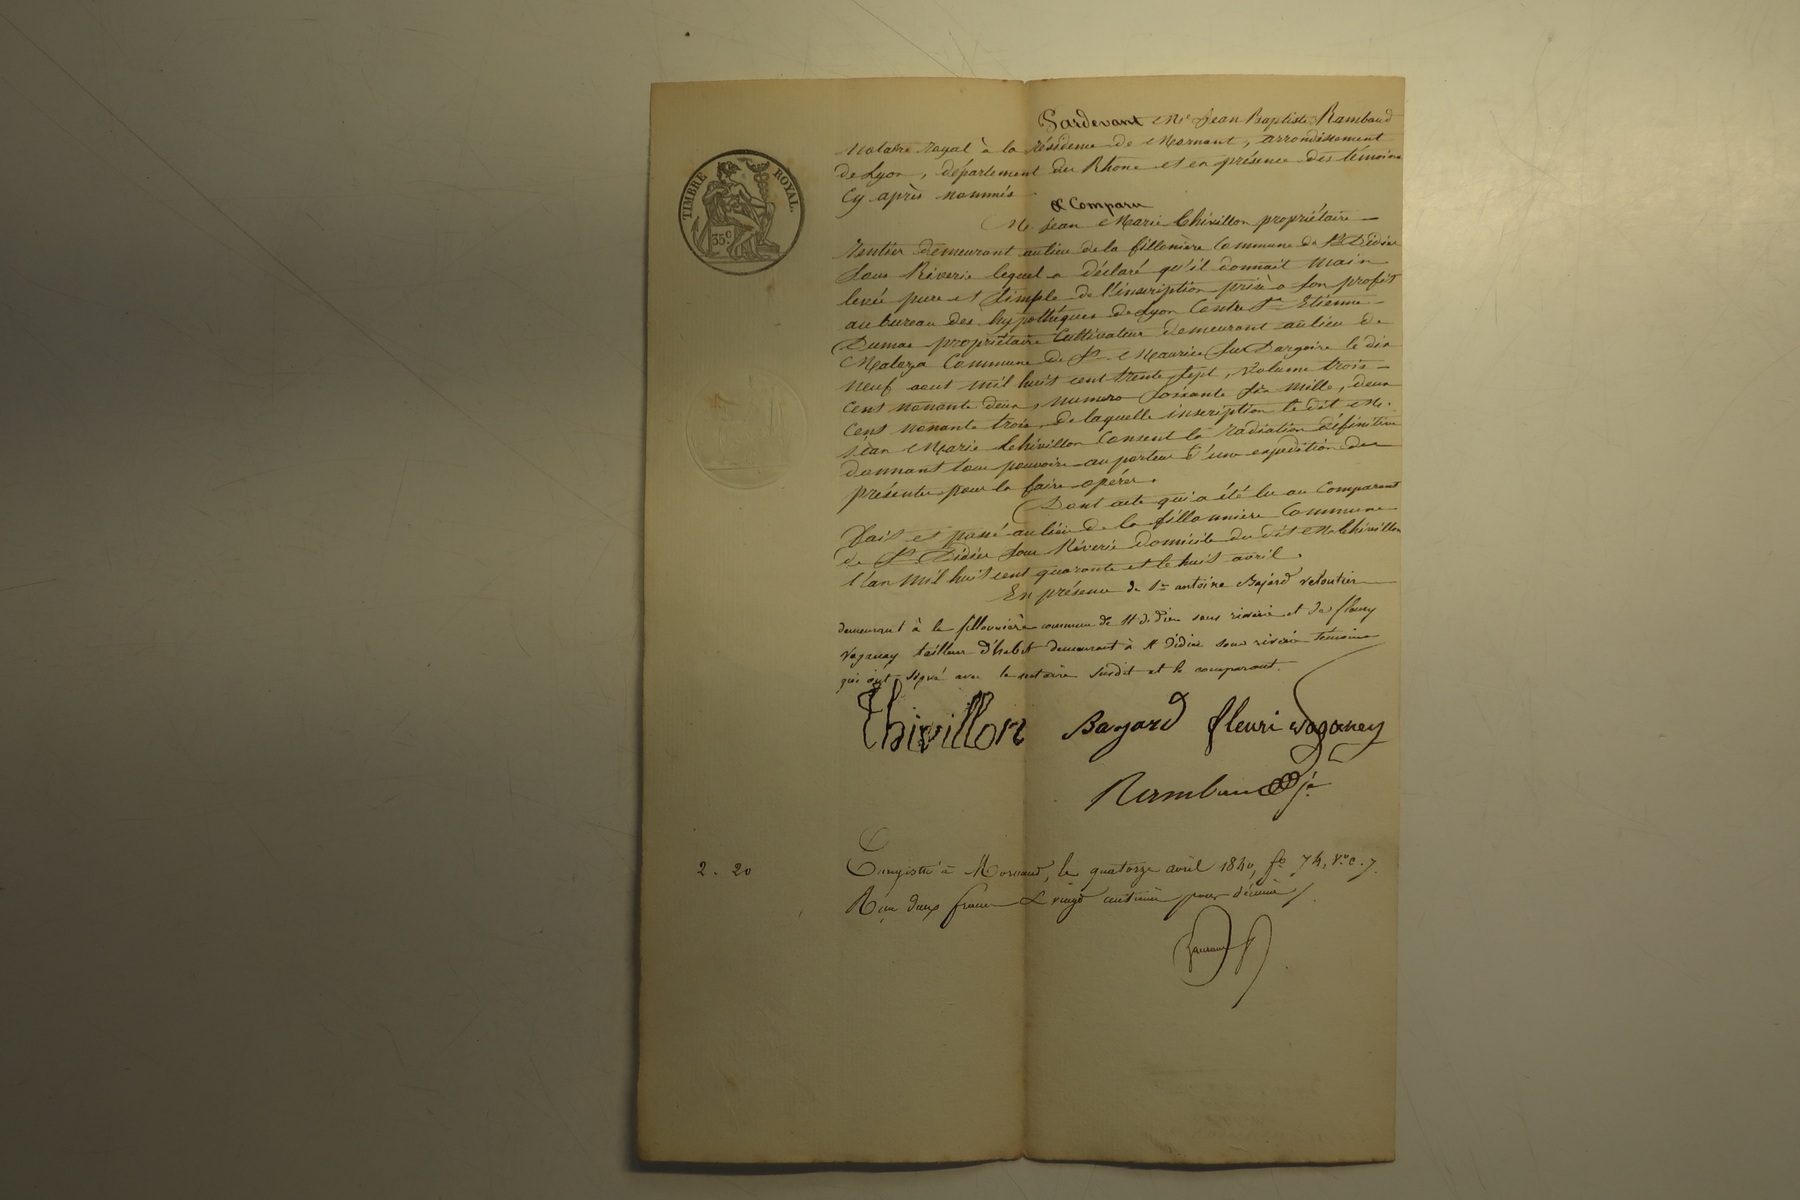 TIMBRE ROYAL.
35 c
Pardevant Me Jean Baptiste Rambaud
Notaire royal à la résidence de Mornant, arrondissement
de Lyon, département du Rhône et en présence des témoins
Cy après nommés
a Comparu
M. Jean Marie Thivillon propriétaire
Rentier demeurant au lieu de la fillonière Commune de St Didier
Sous Riverie lequel a déclaré qu'il donnait main
levée pure et simple de l'inscription prise à son profit
au bureau des hypothèques de Lyon Contre Sr Etienne
Dumas propriétaire Cultivateur demeurant au lieu de
Commune de St Maurice Sur Dargoire le dix
neuf aout mil huit cent trente sept, Volume trois
cent nonante deux, numero soixante six mille, deux
cens nonante trois, de laquelle inscription le dit M.
Jean Marie Thivillon Consent la radiation définitive
donnant tous pouvoirs au porteur d'une expedition des
présentes pour la faire opérer.
Dont acte qui a été lu au Comparant
Fait et passé au lieu de la fillonnière Commune
de St Didier sous Riverie domicile du dit M. Thivillon
l'an mil huit cent quarante et le huit avril.
En présence de Sr antoine Bajard veloutier
demeurant à la fillonnière commune de St didier sous riverie et de fleury
Vaganay tailleur d'habit demeurant à St didier sous riverie temoins
qui ont signé avec le notaire susdit et le comparant.
Thivillon Bayard fleuri vaganey
Rambaud je
2. 20 Enregistré à Mornant, le quatorze avril 1840, fo 74, Vo c. 7.
Reçu deux francs & vingt centimes pour décime